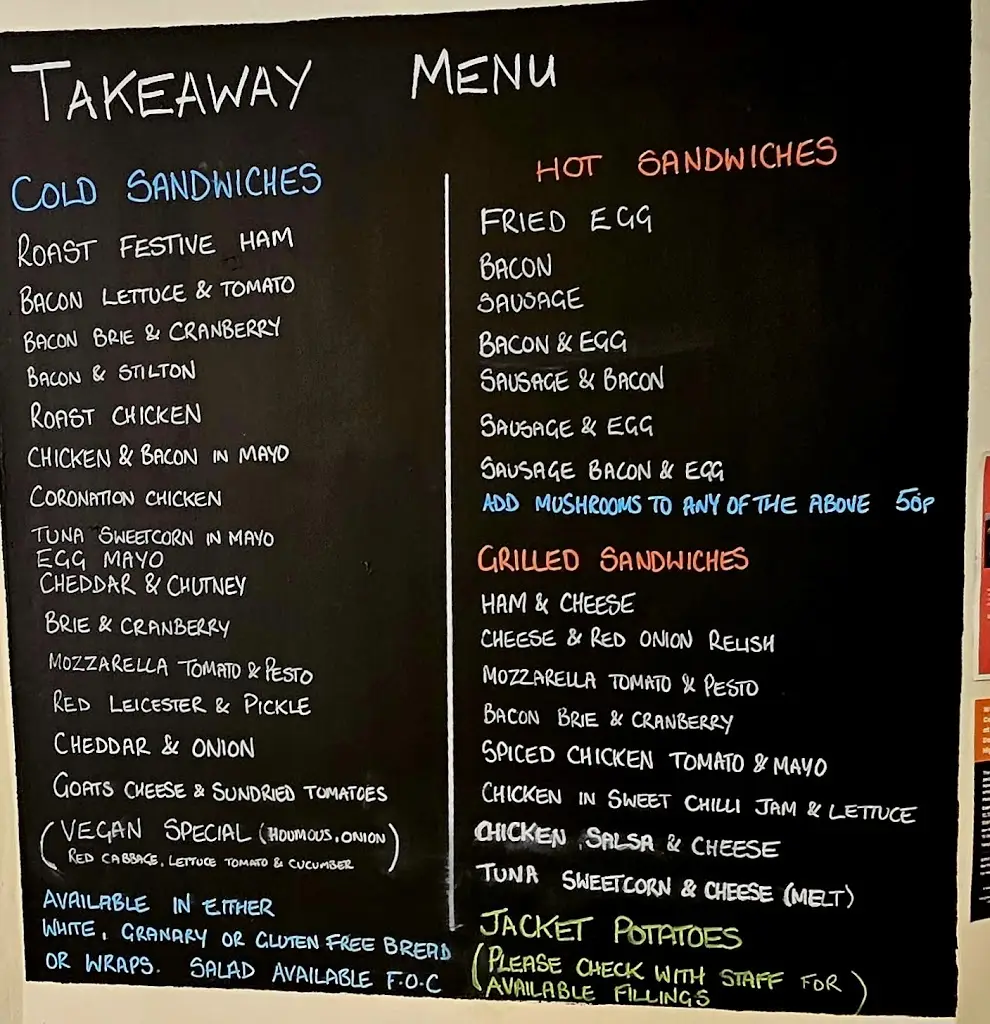 TAKEAWAY MENU
COLD SANDWICHES
ROAST FESTIVE HAM
BACON LETTUCE & TOMATO
BACON BRIE & CRANBERRY
BACON & STILTON
ROAST CHICKEN
CHICKEN & BACON IN MAYO
CORONATION CHICKEN
TUNA SWEETCORN IN MAYO
EGG MAYO
CHEDDAR & CHUTNEY
BRIE & CRANBERRY
MOZZARELLA TOMATO & PESTO
RED LEICESTER & PICKLE
CHEDDAR & ONION
GOATS CHEESE & SUNDRIED TOMATOES
(VEGAN SPECIAL (HOUMOUS, ONION)
RED CABBAGE, LETTUCE TOMATO & CUCUMBER)
AVAILABLE IN EITHER
WHITE, GRANARY OR GLUTEN FREE BREAD
OR WRAPS. SALAD AVAILABLE F.O.C
HOT SANDWICHES
FRIED EGG
BACON
SAUSAGE
BACON & EGG
SAUSAGE & BACON
SAUSAGE & EGG
SAUSAGE BACON & EGG
ADD MUSHROOMS TO ANY OF THE ABOVE 50p
GRILLED SANDWICHES
HAM & CHEESE
CHEESE & RED ONION RELISH
MOZZARELLA TOMATO & PESTO
BACON BRIE & CRANBERRY
SPICED CHICKEN TOMATO & MAYO
CHICKEN IN SWEET CHILLI JAM & LETTUCE
CHICKEN SALSA & CHEESE
TUNA SWEETCORN & CHEESE (MELT)
JACKET POTATOES
(PLEASE CHECK WITH STAFF FOR
AVAILABLE FILLINGS)